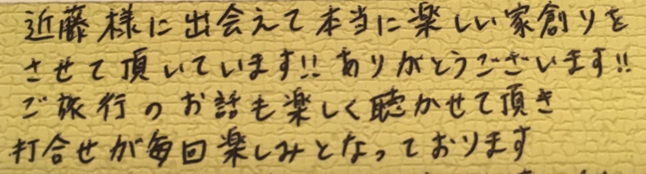 近藤様に出会えて本当に楽しい家創りを
させて頂いています!! ありがとうございます!!
ご旅行のお話も楽しく聴かせて頂き
打合せが毎回楽しみとなっております